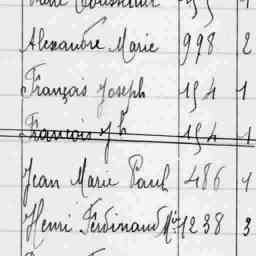 Alexandre Marie 998 2
François Joseph 154 1
François Jh 154 1
Jean Marie Paul 486 1
Henri Ferdinand Mie 1238 3